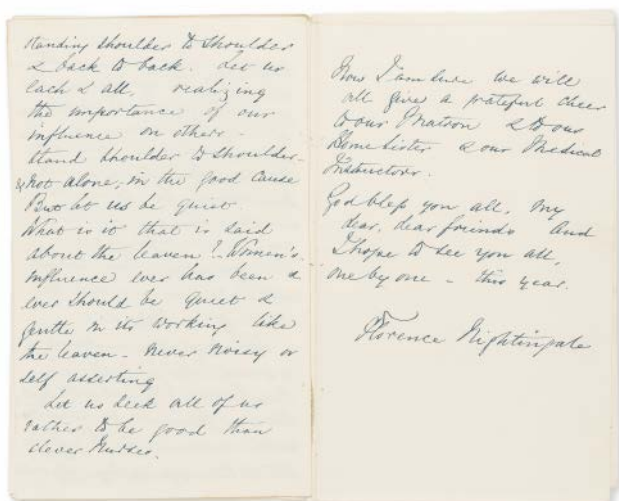 standing shoulder to shoulder
& back to back. Let us
each & all, realizing
the importance of our
influence on others -
stand shoulder to shoulder -
& not alone, in the good cause
But let us be quiet.
What is it that is said
about the leaven? - Women's
influence ever has been &
ever should be quiet &
gentle in its working like
the leaven - never noisy or
self asserting
Let us seek all of us
rather to be good than
clever Nurses.
Now I am sure we will
all give a grateful cheer
to our Matron & to our
Home Sister & our Medical
Instructors.
God bless you all, my
dear, dear friends And
I hope to see you all,
one by one - this year.
Florence Nightingale